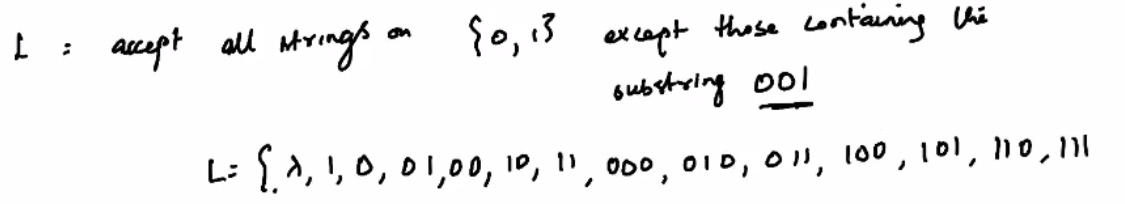 L : accept all strings on {0,1} except those containing the
substring 001
L= {λ, 1, 0, 01,00, 10, 11, 000, 010, 011, 100, 101, 110, 111